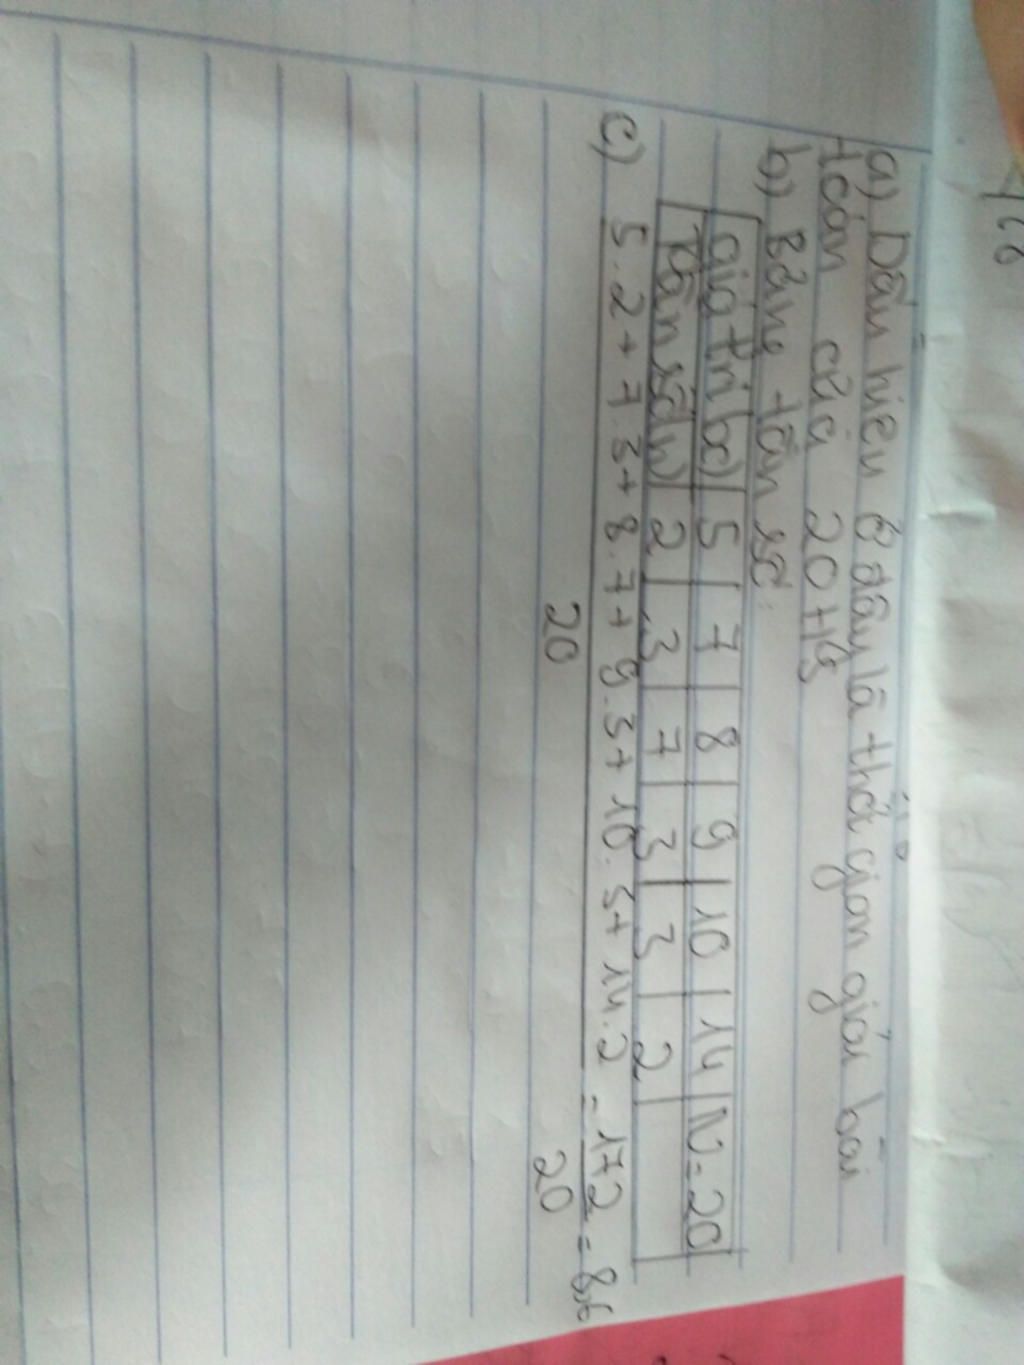 a) Dấu hiệu ở đây là thời gian giải bài
toán của 20 HS
b) Bảng tần số:
Giá trị (x) 5 7 8 9 10 14 N=20
Tần số (n) 2 3 7 3 3 2
c) 5.2+7.3+8.7+9.3+10.3+14.2 = 172 = 8,6
20 20